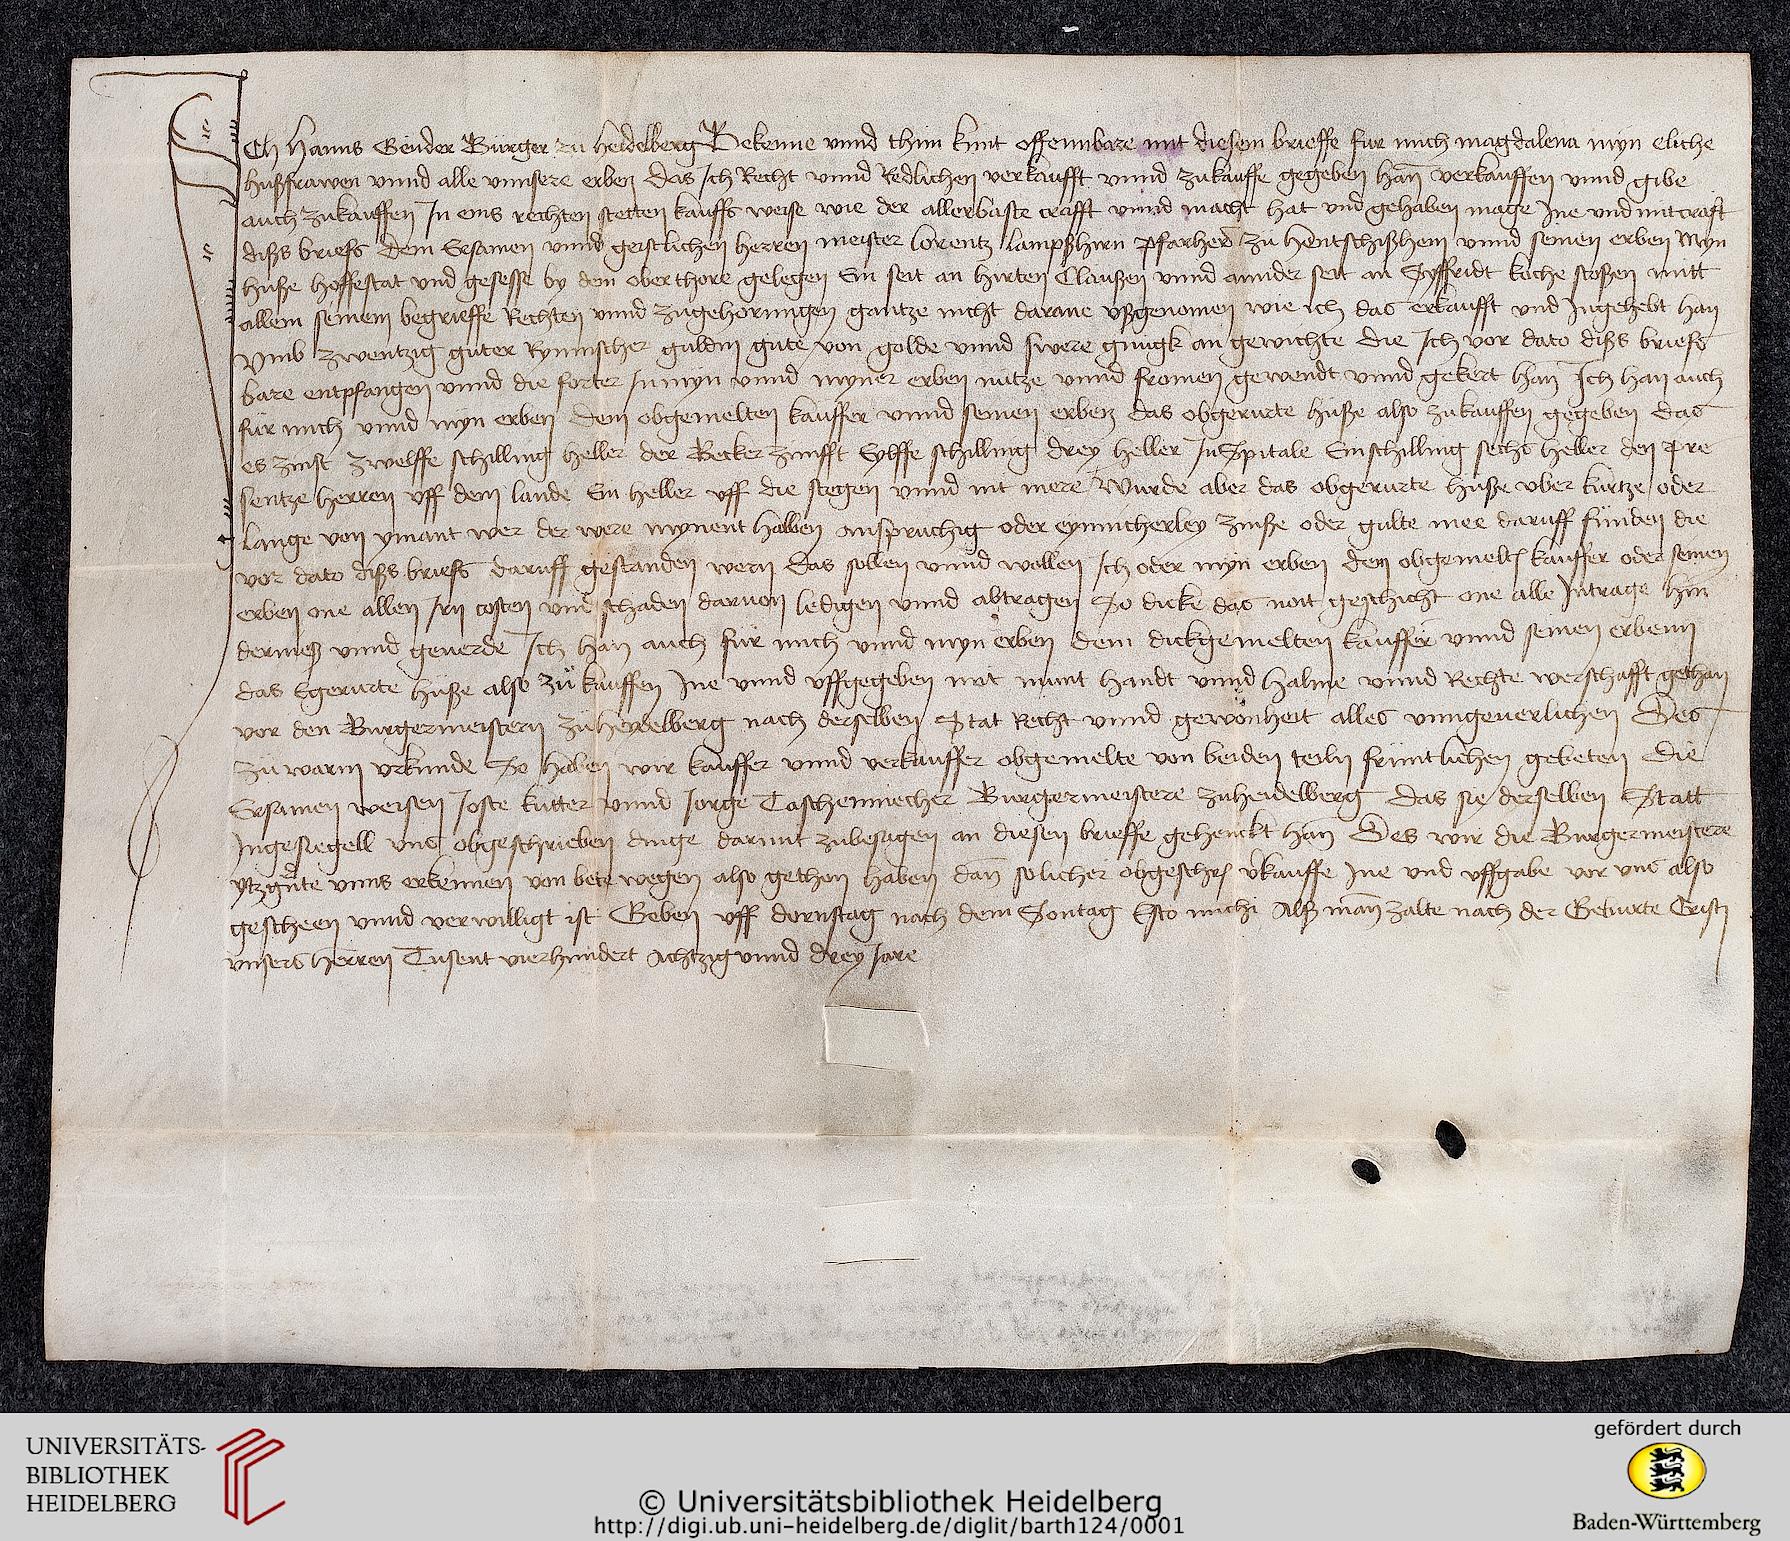 Ich Hanns Gender Burger zu Heidelberg Bekenne unnd thun kunt offennbare mit diesem brieffe fur mich magdalena myn eliche
hußfrawen unnd alle unnsere erben das Ich Recht unnd Redlichen verkaufft unnd zukauffe gegeben han verkauffen unnd gibe
auch zukauffen In eins rechten stetten kauffs weise wie der allerbaste crafft unnd macht hat und gehaben mage Ine und mit craft
dißs briefs dem Ersamen unnd geistlichen herren meister lorentz lampßhirn pfarher zu Hentschißhem unnd seinen erben Myn
Huße hoffestat und gesesse by dem oberthore gelegen Ein seit an hirten Claußen unnd annder seit an Syffridt koche stoßen mitt
allem seinem begrieffe Rechten unnd zugehorungen gantze nicht darane ußgenomen wie ich das erkaufft und Ingehebt han
Umb zwentzig guter Rynnischer guldin gute von golde unnd swere gnugk an gewichte die Ich vor dato dißs briefs
bare entpfangen unnd die forter In myn unnd myner erben nutze unnd fromen gewendt unnd gekert han Ich han auch
fur mich unnd myn erben dem obgemelten kauffer unnd seinen erben das obgerurte huße also zukauffen gegeben das
es zinst zwelffe schilling heller der Becker zunfft Eylffe schilling drey heller In Spitale Ein schilling sechs heller den pre
sentze herren uff dem lande Ein heller uff die stegen unnd nit mere Wurde aber das obgerurte huße uber kurtze oder
lange von ymant wer der were mynent halben anspruchig oder eynnicherley zinße oder gulte mee daruff funden die
vor dato dißs briefs daruff gestanden wern das sollen unnd wollen Ich oder myn erben dem obgemelt kauffer oder seinen
erben one allen Irn costen und schaden darvon ledigen unnd abtragen So dicke das noit geschicht one alle Intrage hin
derniß unnd geverde Ich han auch fur mich unnd myn erben dem dickgemelten kauffer unnd seinen erbenn
das Egerurte huße also zu kauffen Ine unnd uffgegeben mit munt handt unnd halme unnd Rechte werschafft gethan
vor den Burgermeistern zu heydelberg nach derselben Stat Recht unnd gewonheit alles unngeverlichen Des
zu warm urkunde So haben wir kauffer unnd verkauffer obgemelte von beiden teiln fruntlichen gebeten die
Ersamen weisen Joste kutter unnd Jorge Taschenmecher Burgermeistere zu heidelberg das sie derselben Statt
Ingesiegell uns obgeschrieben dinge darmit zubesagen an diesen brieffe gehenckt han Des wir die Burgermeistere
ytzgnte unns erkennen von bete wegen also gethon haben dan solicher obgeschr verkauffe Ine und uffgabe vor uns also
gescheen unnd verwilligt ist Geben uff dornstag nach dem Sontag Esto michi Alß man zalte nach der Geburte Cristi
unsers herren Tusent vierhundert Achtzig unnd drey Jare
UNIVERSITÄTS-
BIBLIOTHEK
HEIDELBERG
© Universitätsbibliothek Heidelberg
http://digi.ub.uni-heidelberg.de/diglit/barth124/0001
gefördert durch
Baden-Württemberg